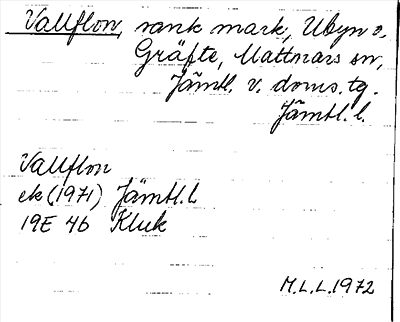 Vallflon, sank mark, Ubyn o.
Gräfte, Mattmars sn,
Jämtl. v. doms. tg.
Jämtl. l.
Vallflon
ek (1971) Jämtl. l
19E 4b Kluk
M.L.L. 1972